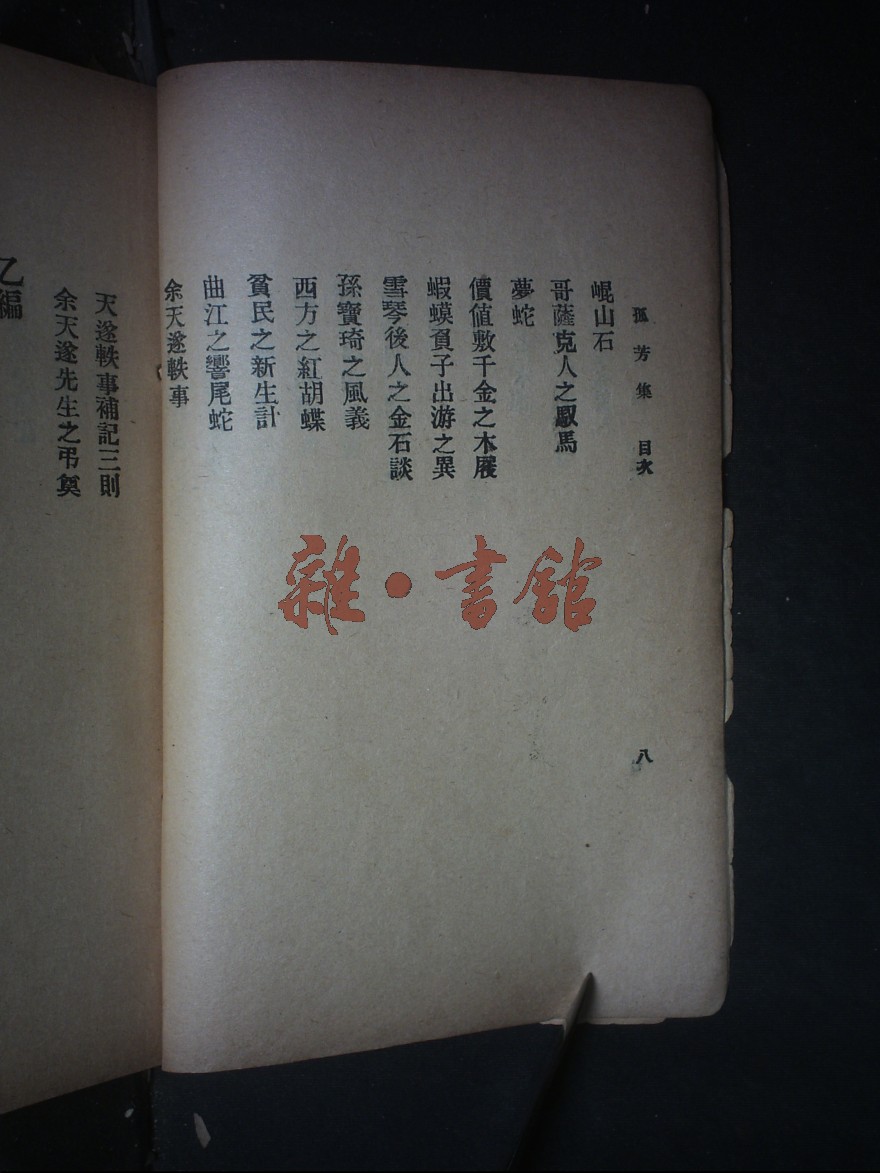 孤芳集 目次
八
崐山石
哥薩克人之馭馬
夢蛇
價值數千金之木屐
蝦蟆貧子出游之異
雪琴後人之金石談
孫寶琦之風義
西方之紅胡蝶
貧民之新生計
曲江之響尾蛇
余天遂軼事
天遂軼事補記三則
余天遂先生之弔奠
乙編
雜·書館